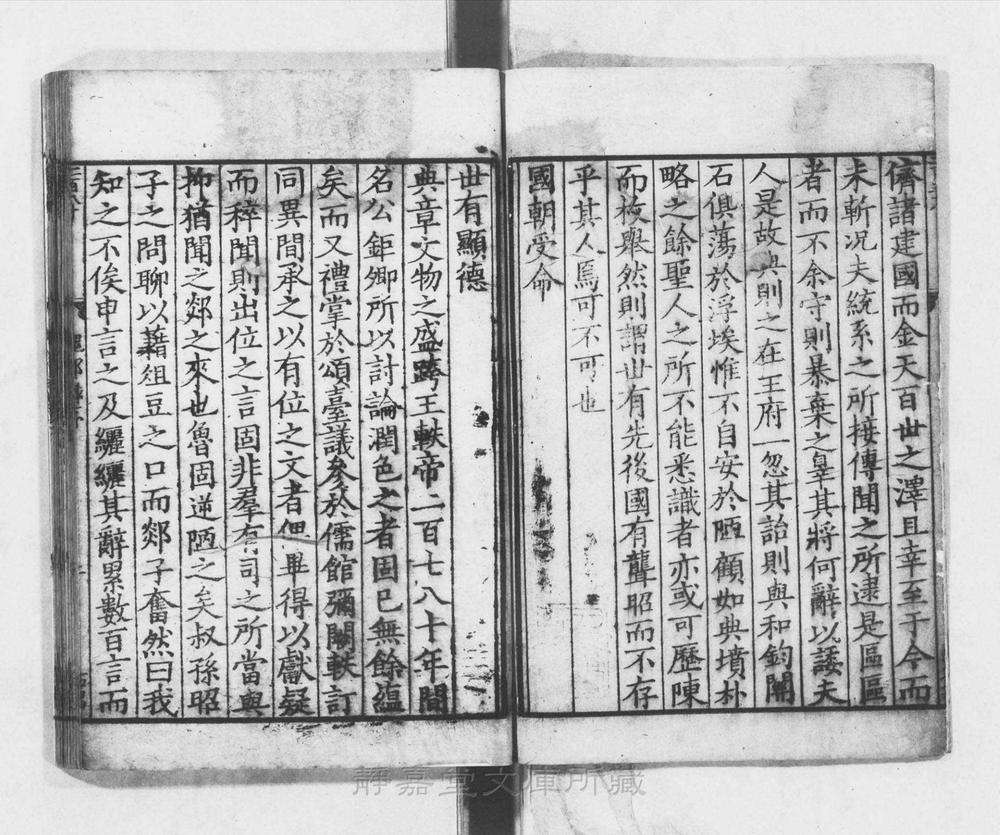 儕諸建國而金天百世之澤且幸至于今而
未斬况夫統系之所接傳聞之所逮是區區
者而不余守則暴棄之辠其將何辭以諉天
人是故典則之在王府一忽其詒則與和鈞關
石俱蕩於浮埃惟不自安於陋顧如典墳朴
略之餘聖人之所不能悉識者亦或可歷陳
而枚舉然則謂世有先後國有聾昭而不存
乎其人焉可不可也
國朝受命
世有顯德
典章文物之盛跨王軼帝二百七八十年間
名公鉅卿所以討論潤色之者固已無餘蘊
矣而又禮掌於頌臺議參於儒館彌闕軼訂
同異間承之以有位之文者俚畢得以獻疑
而稡聞則出位之言固非羣有司之所當與
抑猶聞之郯之來也魯固逆陋之矣叔孫昭
子之問聊以藉俎豆之口而郯子奮然曰我
知之不俟申言之及纚纚其辭累數百言而
靜嘉堂文庫所藏